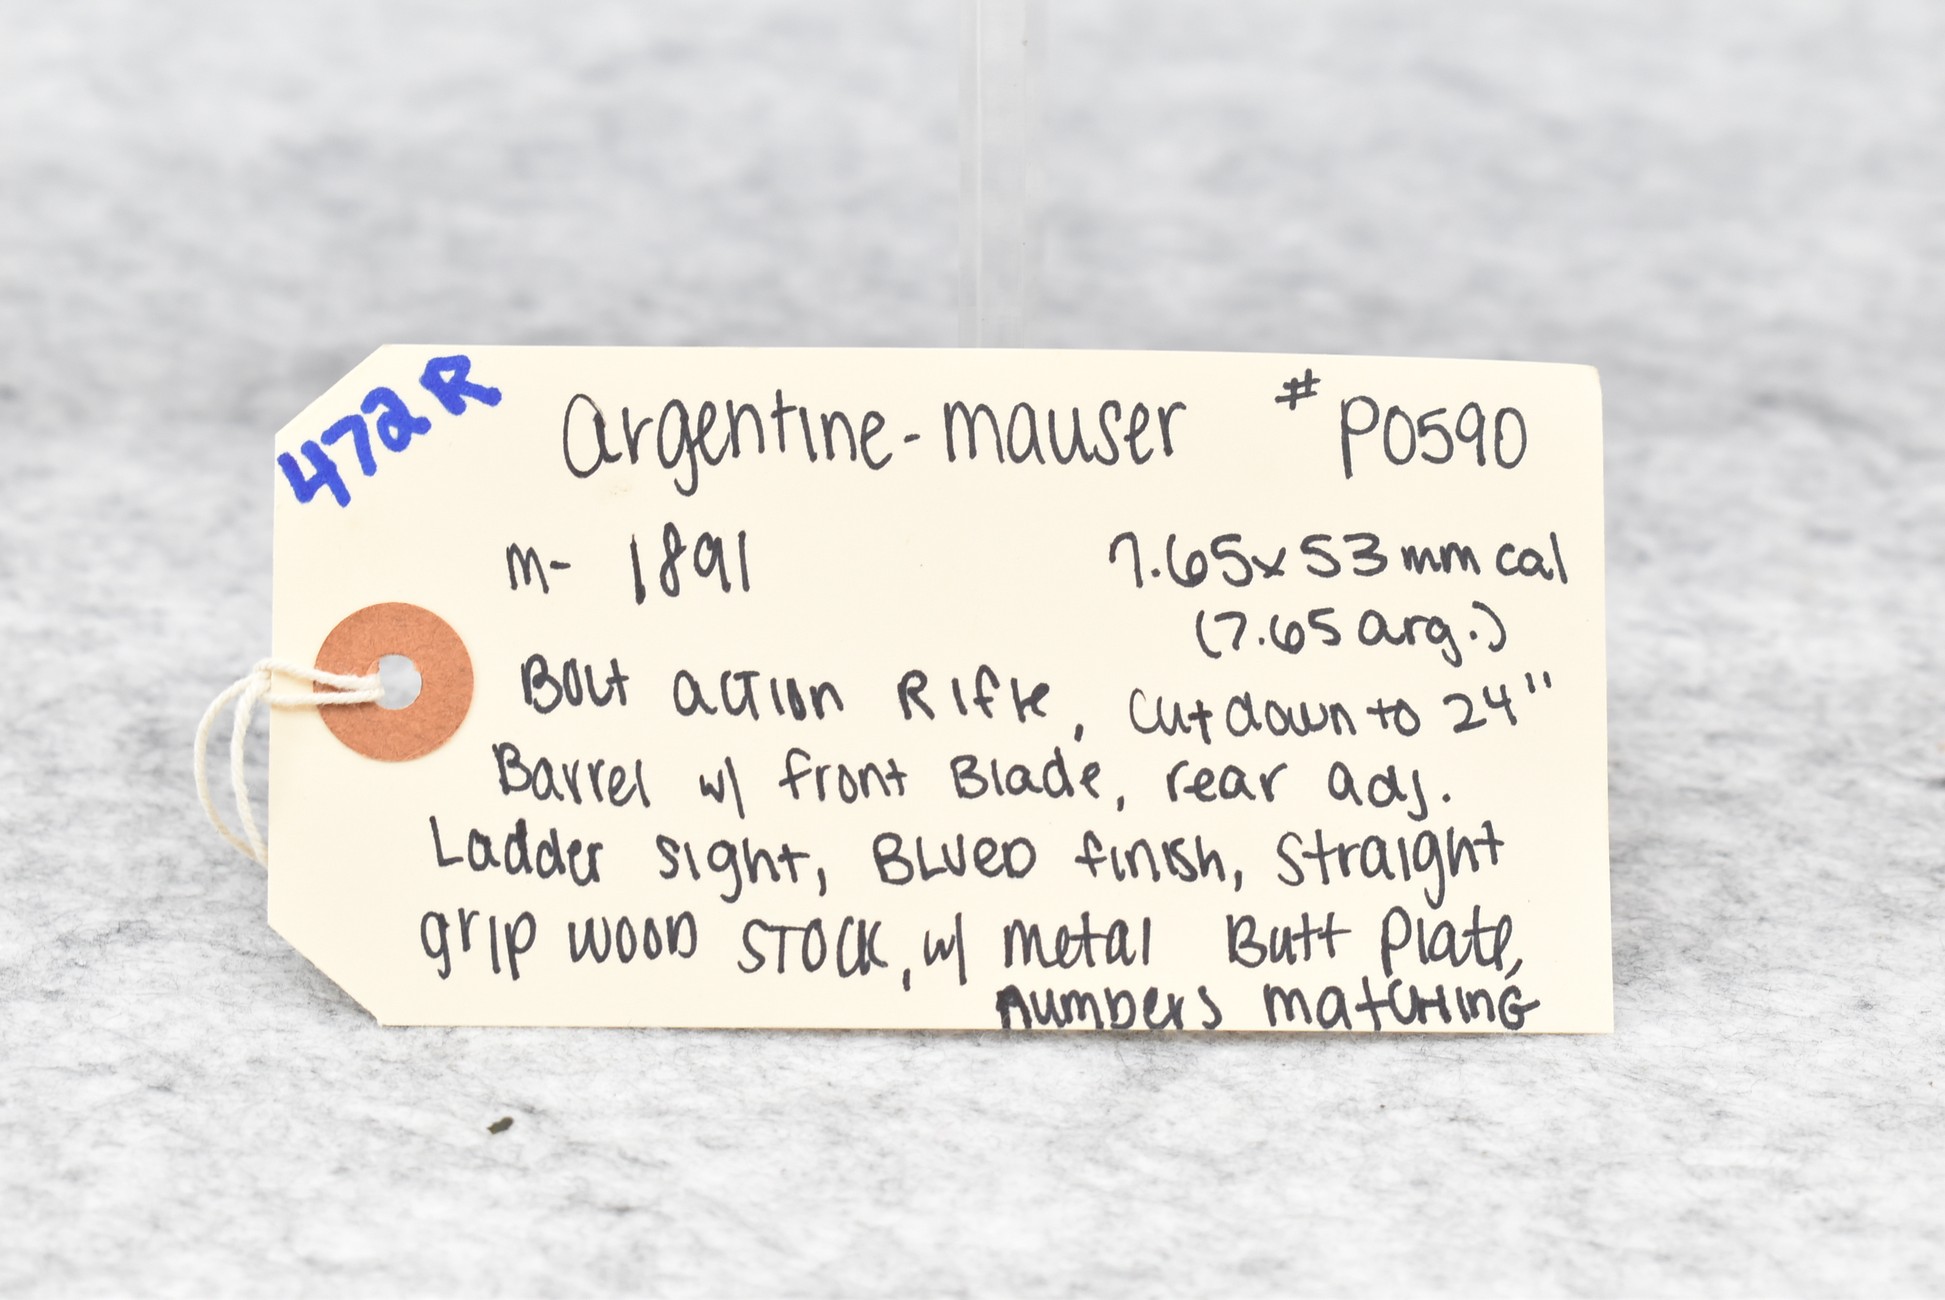 472R
Argentine-mauser # P0590
m- 1891 7.65x53mm cal
(7.65 arg.)
Bolt action Rifle, cut down to 24"
Barrel w/ front Blade, rear adj.
Ladder sight, BLUED finish, straight
grip wood STOCK, w/ metal Butt Plate,
numbers matching